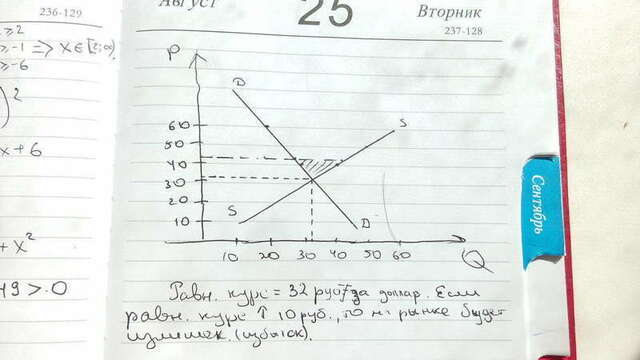 236-129
Август
25
Вторник
237-128
≥ 2
≥ -1 => x ∈ [2; ∞)
≥ -6
)²
x + 6
+ x²
49 > 0
P
D
60
50
40
30
20
10
S
S
D
10 20 30 40 50 60
Q
Сентябрь
Равн. курс = 32 руб за доллар. Если
равн. курс ↑ 10 руб., то на рынке будет
излишек. (избыток).